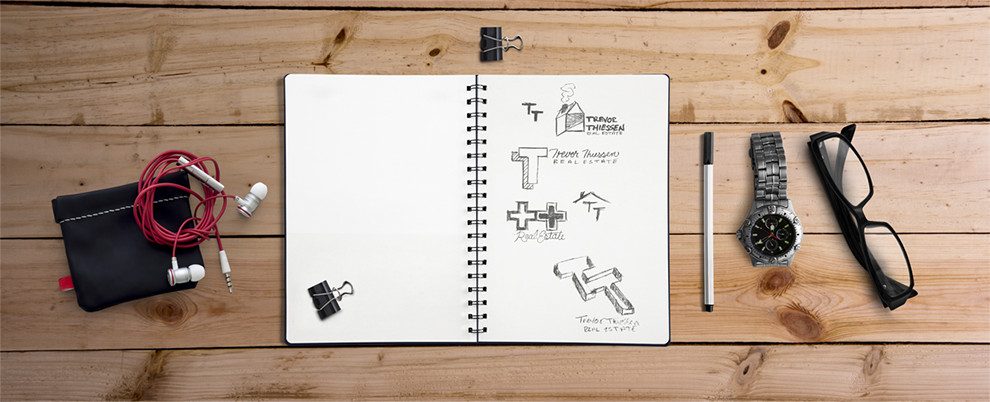 TT
TREVOR
THIESSEN
REAL ESTATE
T
Trevor Thiessen
REAL ESTATE
TT
Real Estate
TREVOR THIESSEN
REAL ESTATE